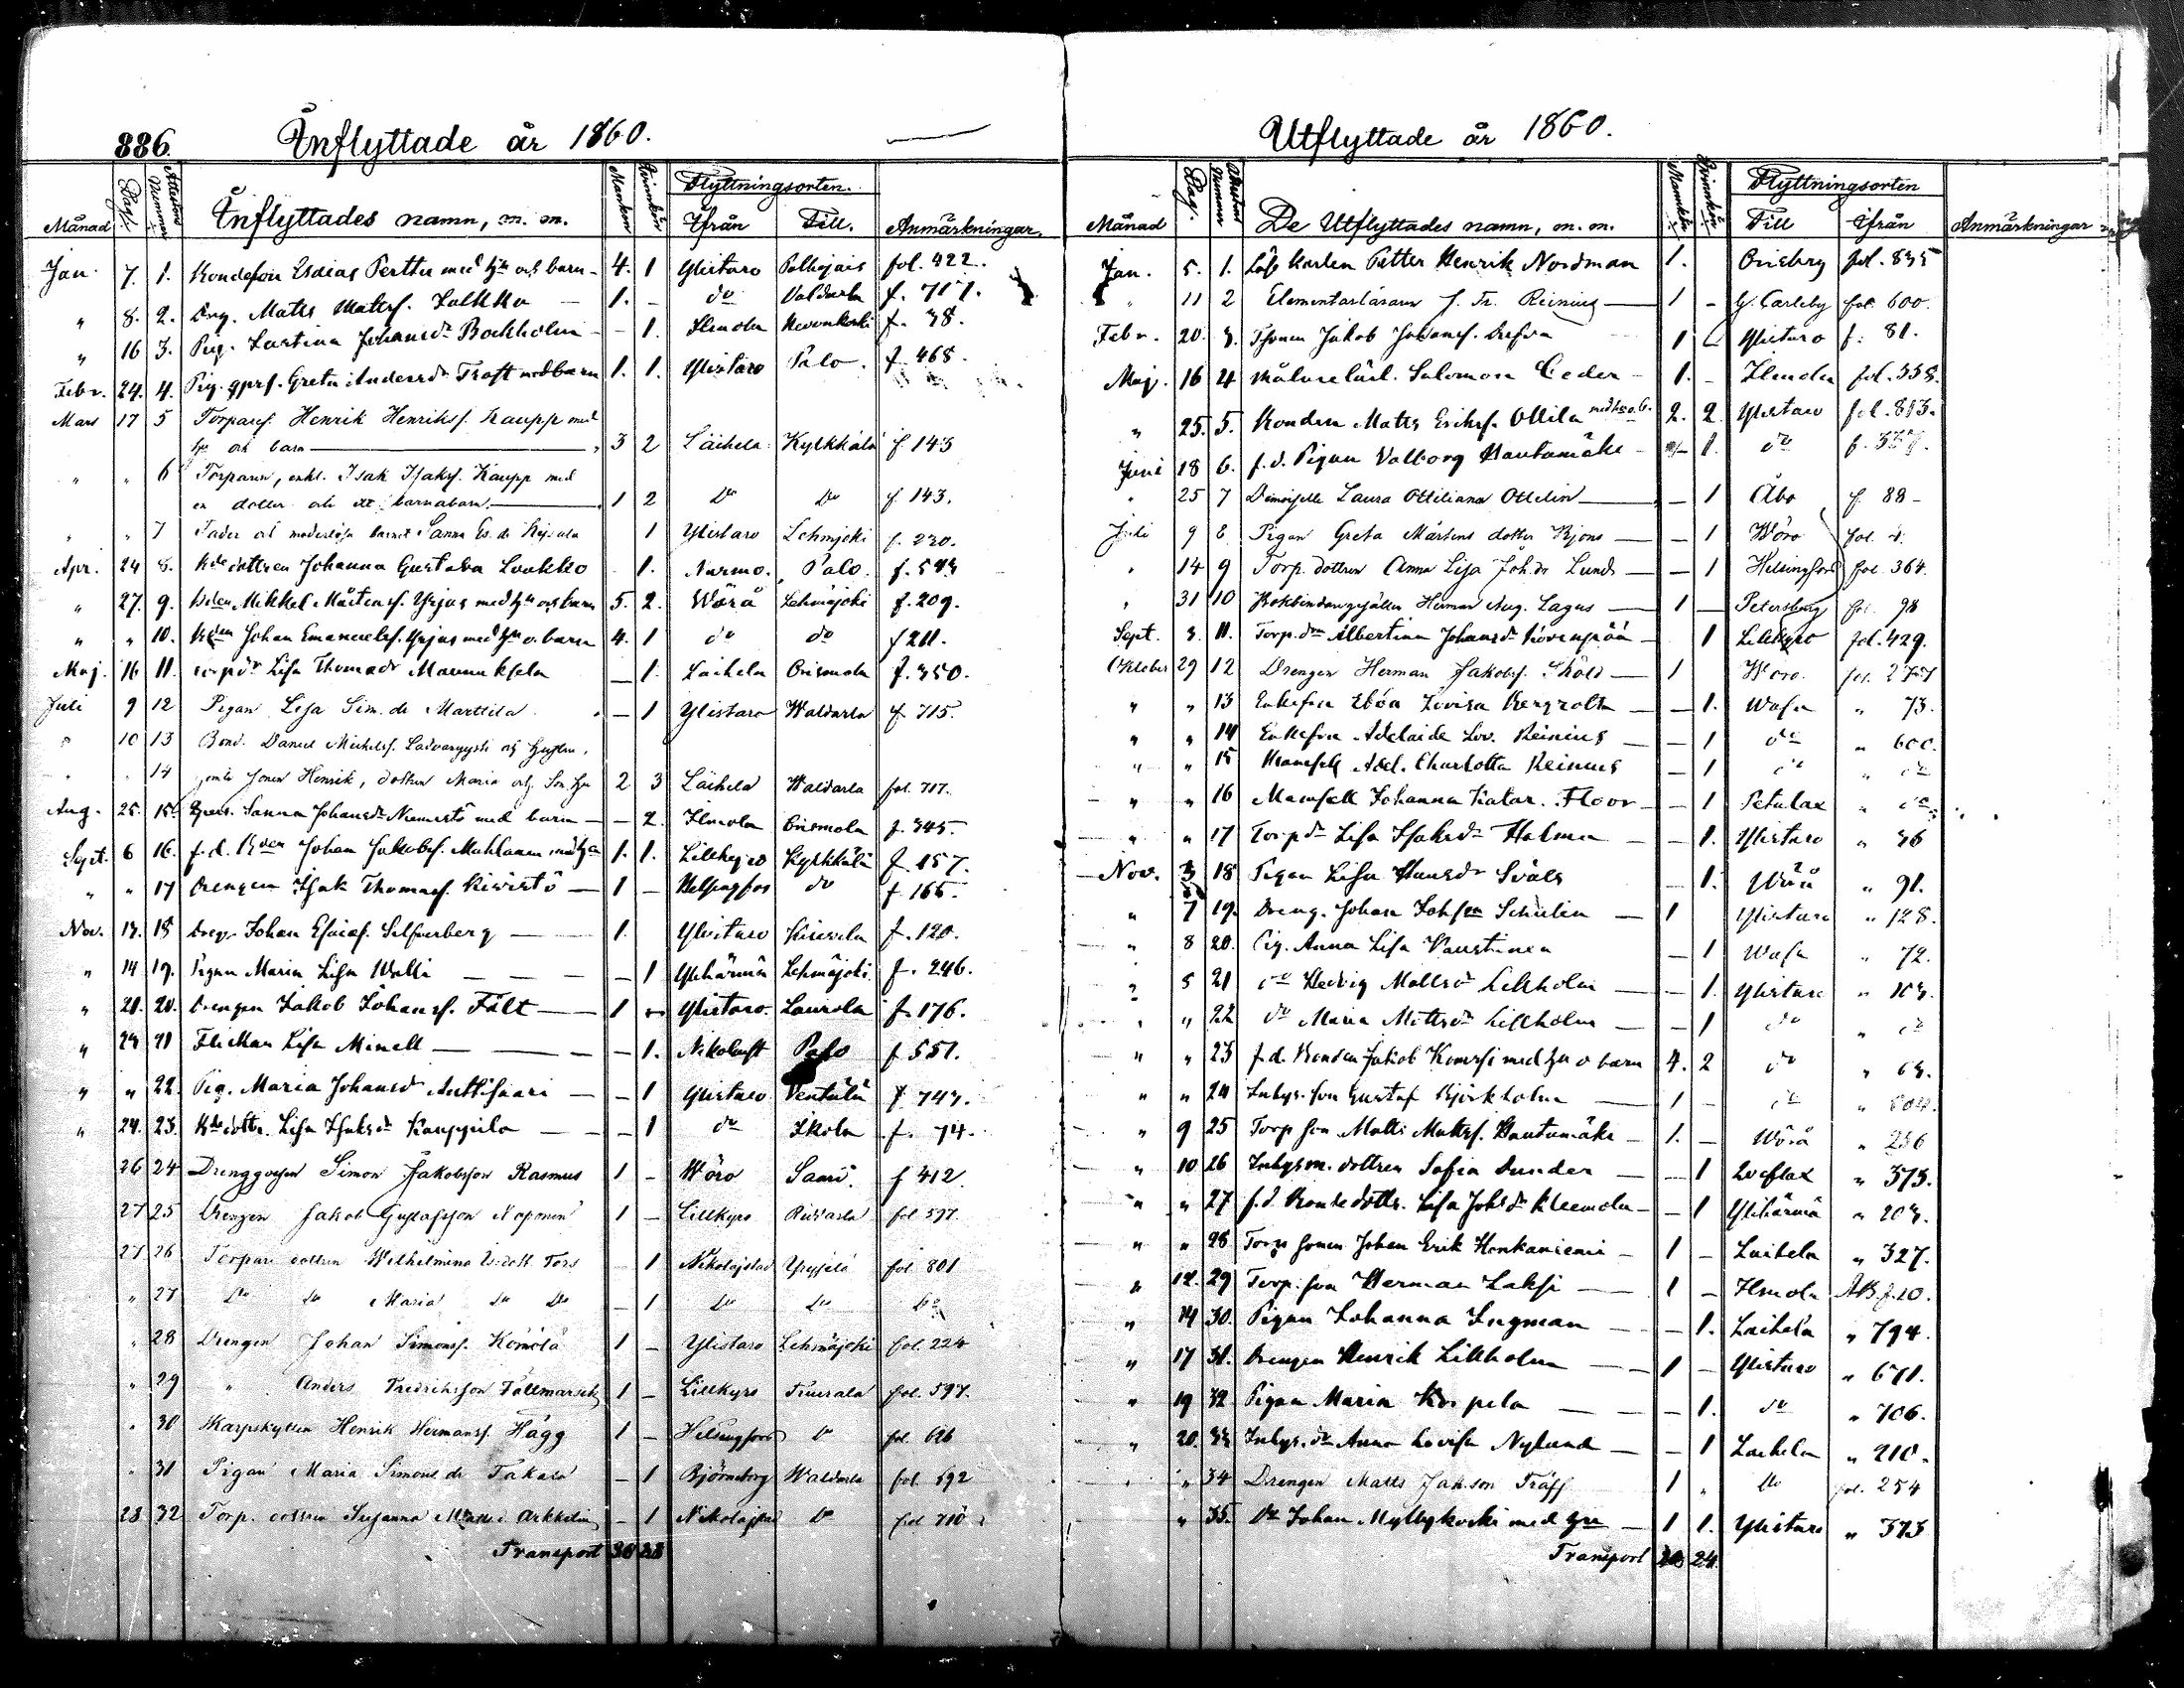 886.
Inflyttade år 1860.
Månad Dag. Attestens Nummer Inflyttades namn, m. m. Mankön Qvinkön Flyttningsorten. Ifrån Till. Anmärkningar.
Jan. 7. 1. Bondeson Esaias Perttu med hu och barn - 4. 1 Ylistaro Palhojais fol. 422.
" 8. 2. Drg. Matts Mattss. Jalkka - 1. - do Valdarla f. 717.
" 16 3. Pig. Justina Johansdr Backholm - - 1. Ilmola f. 38.
Febr. 24. 4. Pig. Greta Andersdr Trast med barn 1. 1. Ylistaro Palo. f. 468.
Mars 17 5 Torparen Henrik Henrikss. Kaupp med
hu och barn 3 2 Laihela Kylkkälä f 143
" " 6 Torparen, enkl. Isak Isakss. Kaupp med
en dotter och ett barnabarn. 1 2 Do Do f 143.
" " 7 Fader och moderlösa barnet Sanna Es. dr 1 Ylistaro Lehmjoki f. 230.
Apr. 24 8. Bde dottren Johanna Gustava Luukko - 1. Nurmo. Palo. f. 543
" 27. 9. Bden Mikkel Mårtenss. Yrjas med hu och barn 5. 2. Wörå Lehmäjoki f. 209.
" " 10. Bden Johan Emanuelss. Yrjas med hu o. barn 4. 1 do do f 211.
Maj. 16 11. Torpdr Lisa Thomasdr Maunuksela _ 1. Laihela Orismola f. 350.
Juli 9 12 Pigan Lisa Sim. dr Marttila. - 1 Ylistaro Waldarla f. 715.
" 10 13 Bond. Daniel Michelss. och hustru,
" " 14 jemte sonen Henrik, dottren Maria och Son. hu 2 3 Laihela Waldarla fol. 717.
Aug. 25. 15. Sanna Johansdr Niemistö med barn - - 2. Ilmola Orismola f. 345.
Sept. 6 16. f. d. Bden Johan Jakobss. Mahlanen med hu 1. 1. Lillkyro Kylkkälä f. 157.
" " 17 Drengen Isak Thomass. Kiviristö - 1 - Helsingfors do f. 165.
Nov. 13. 18 Dreg. Johan Esaiass. Silfverberg - 1. Ylistaro Kuivila f. 120.
" 14 19. Pigan Maria Lisa Walli - - - - 1 Ylihärmä Lehmäjoki f. 246.
" 21. 20. Drengen Jakob Johanss. Fält - 1 - Ylistaro. Laurola f. 176.
" 23 21 Flickan Lisa Minell - - - - 1. Nikolaist Palo f. 551.
" " 22. Pig. Maria Johansdr Anttisaari - - 1 Ylistaro Ventälä f. 743.
" 24. 23. Bde dottr. Lisa Isaksdr Kauppila - - 1 do Ikola f. 74.
26 24 Drenggossen Simon Jakobsson Rasmus 1 - Wöro Saari. f 412.
27 25 Drengen Jakob Gustafsson Noponen 1 - Lillkyro fol 597.
27 26 Torpare dottren Wilhelmina Tors 1 Nikolajstad fol 801
" 27 Do Do Maria Do Do - 1 Do Do Do
" 28 Drengen Johan Simonss. Komola 1 - Ylistaro Lehmäjoki fol. 224
" 29 " Anders Fredriksson Fallmarsch 1 - Lillkyro fol. 597.
" 30 Skarpskytten Henrik Hermanss. Hägg 1 - Helsingfors Do fol. 616
" 31 Pigan Maria Simons dr Takala - 1 Björneborg Waldarla fol. 692
28 32 Torp. dottren Susanna - 1 Nikolajstad Do fol 710
Transport 30 28
Utflyttade år 1860.
Månad Dag. Attestens Numer De Utflyttades namn, m. m. Mankön Qvinkön Flyttningsorten Till Ifrån Anmärkningar
Jan. 5. 1. Petter Henrik Nordman 1. fol. 835
" 11 2 Elementarläraren J. Fr. Reinius 1 - G. Carleby fol. 600.
Febr. 20. 3. Jakob Johanss. 1 Ylistaro f. 81.
Maj. 16 4 Målarelärl. Salomon Ceder - 1. - Ilmola fol. 558.
" 25. 5. Bonden Matts Erikss. Ollila med hu o. b. 2. 2. Ylistaro fol. 813.
Juni 18 6. f. d. Pigan Valborg Hautamäki - 1. do f. 357.
" 25 7 Demoiselle Laura Ottiliana Ottelin - 1 Åbo f. 88 -
Juli 9 8 Pigan Greta Mårtens dotter Bjons - - 1 Wöro fol. 4.
" 14 9 Torp. dottren Anna Lisa Joh. dr Lund - - 1 Helsingfors fol. 364.
" 31 10 Bokbindaregesällen Herman Aug. Lagus - 1 - Petersburg fol. 98
Sept. 3. 11. Torp. dtr Albertina Johansdr Kovenpää - 1 Lillkyro fol. 429.
Oktober 29 12 Drengen Herman Jakobss. Sköld - 1 Woro. fol. 277
" " 13 Enkefru Ebba Lovisa Bergroth - - 1. Wasa " 73.
" " 14 Enkefru Adelaide Lov. Reinius - - 1 do " 600.
" " 15 Mamsell Adel. Charlotta Reinius - 1 do " do
" " 16 Mamsell Johanna Katar. Floor - - 1 Petalax " do
" " 17 Torpdr Lisa Isaksdr Holma - - 1. Ylistaro " 36
Nov. 3 18 Pigan Lisa Hansdr Sväls - 1. Wörå " 91.
" 7 19. Dreng. Johan Johsson Schulin - 1 Ylistaro " 128.
" 8 20. Pig. Anna Lisa Kaustinen - 1 Wasa " 72.
" 5 21 do Hedvig Mattsdr Lillholm - - 1. Ylistaro " 103.
" " 22 do Maria Mattsdr Lillholm - - 1 do " do
" " 23 f. d. Bonden Jakob med hu o barn 4. 2 do " 63.
" " 24 Inhys. son Gustaf Björkholm - 1 - do " 804.
" 9 25 Torp son Matts Mattss. Hautamäki - 1. - Wörå " 256
" 10 26 Inhysm. dottren Sofia Sunden - - 1 Qveflax " 373.
" " 27 f. d. Bonde dottr. Lisa Johsdr Kleemola - - 1 Ylihärmä " 203.
" " 28 Torp sonen Johan Erik Honkaniemi - 1 - Laihela " 327.
" 12. 29 Torp. son Herman Laksi - 1 - Ilmola f. 10.
" 14 30. Pigan Johanna Ingman - - 1. Laihela " 794.
" 17 31. Drengen Henrik Lillholm - 1 - Ylistaro " 671.
" 19 32 Pigan Maria Korpela - - - 1. do " 706.
" 20. 33 Inhys. dr Anna Lovisa Nylund - - 1 Laihela " 210.
" " 34 Drengen Matts Jakson Träff 1 " Do fol. 254
" 35. Do Johan Myllykoski med hu - 1 1. Ylistaro " 373
Transport 24.